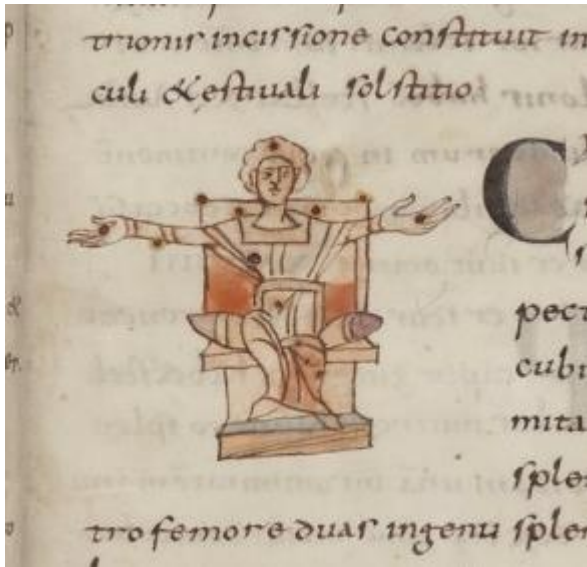 trionis incissione constituit in
culi & estivali solstitio
C
pect
cubi
mita
splen
tro femore duas ingenu splen